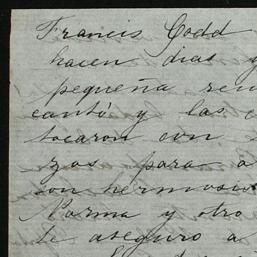 Francis Codd
hacen dias y
pequeña
cantó y las
tocaron con
zas para
son hermosos
Norma y otro
te aseguro a